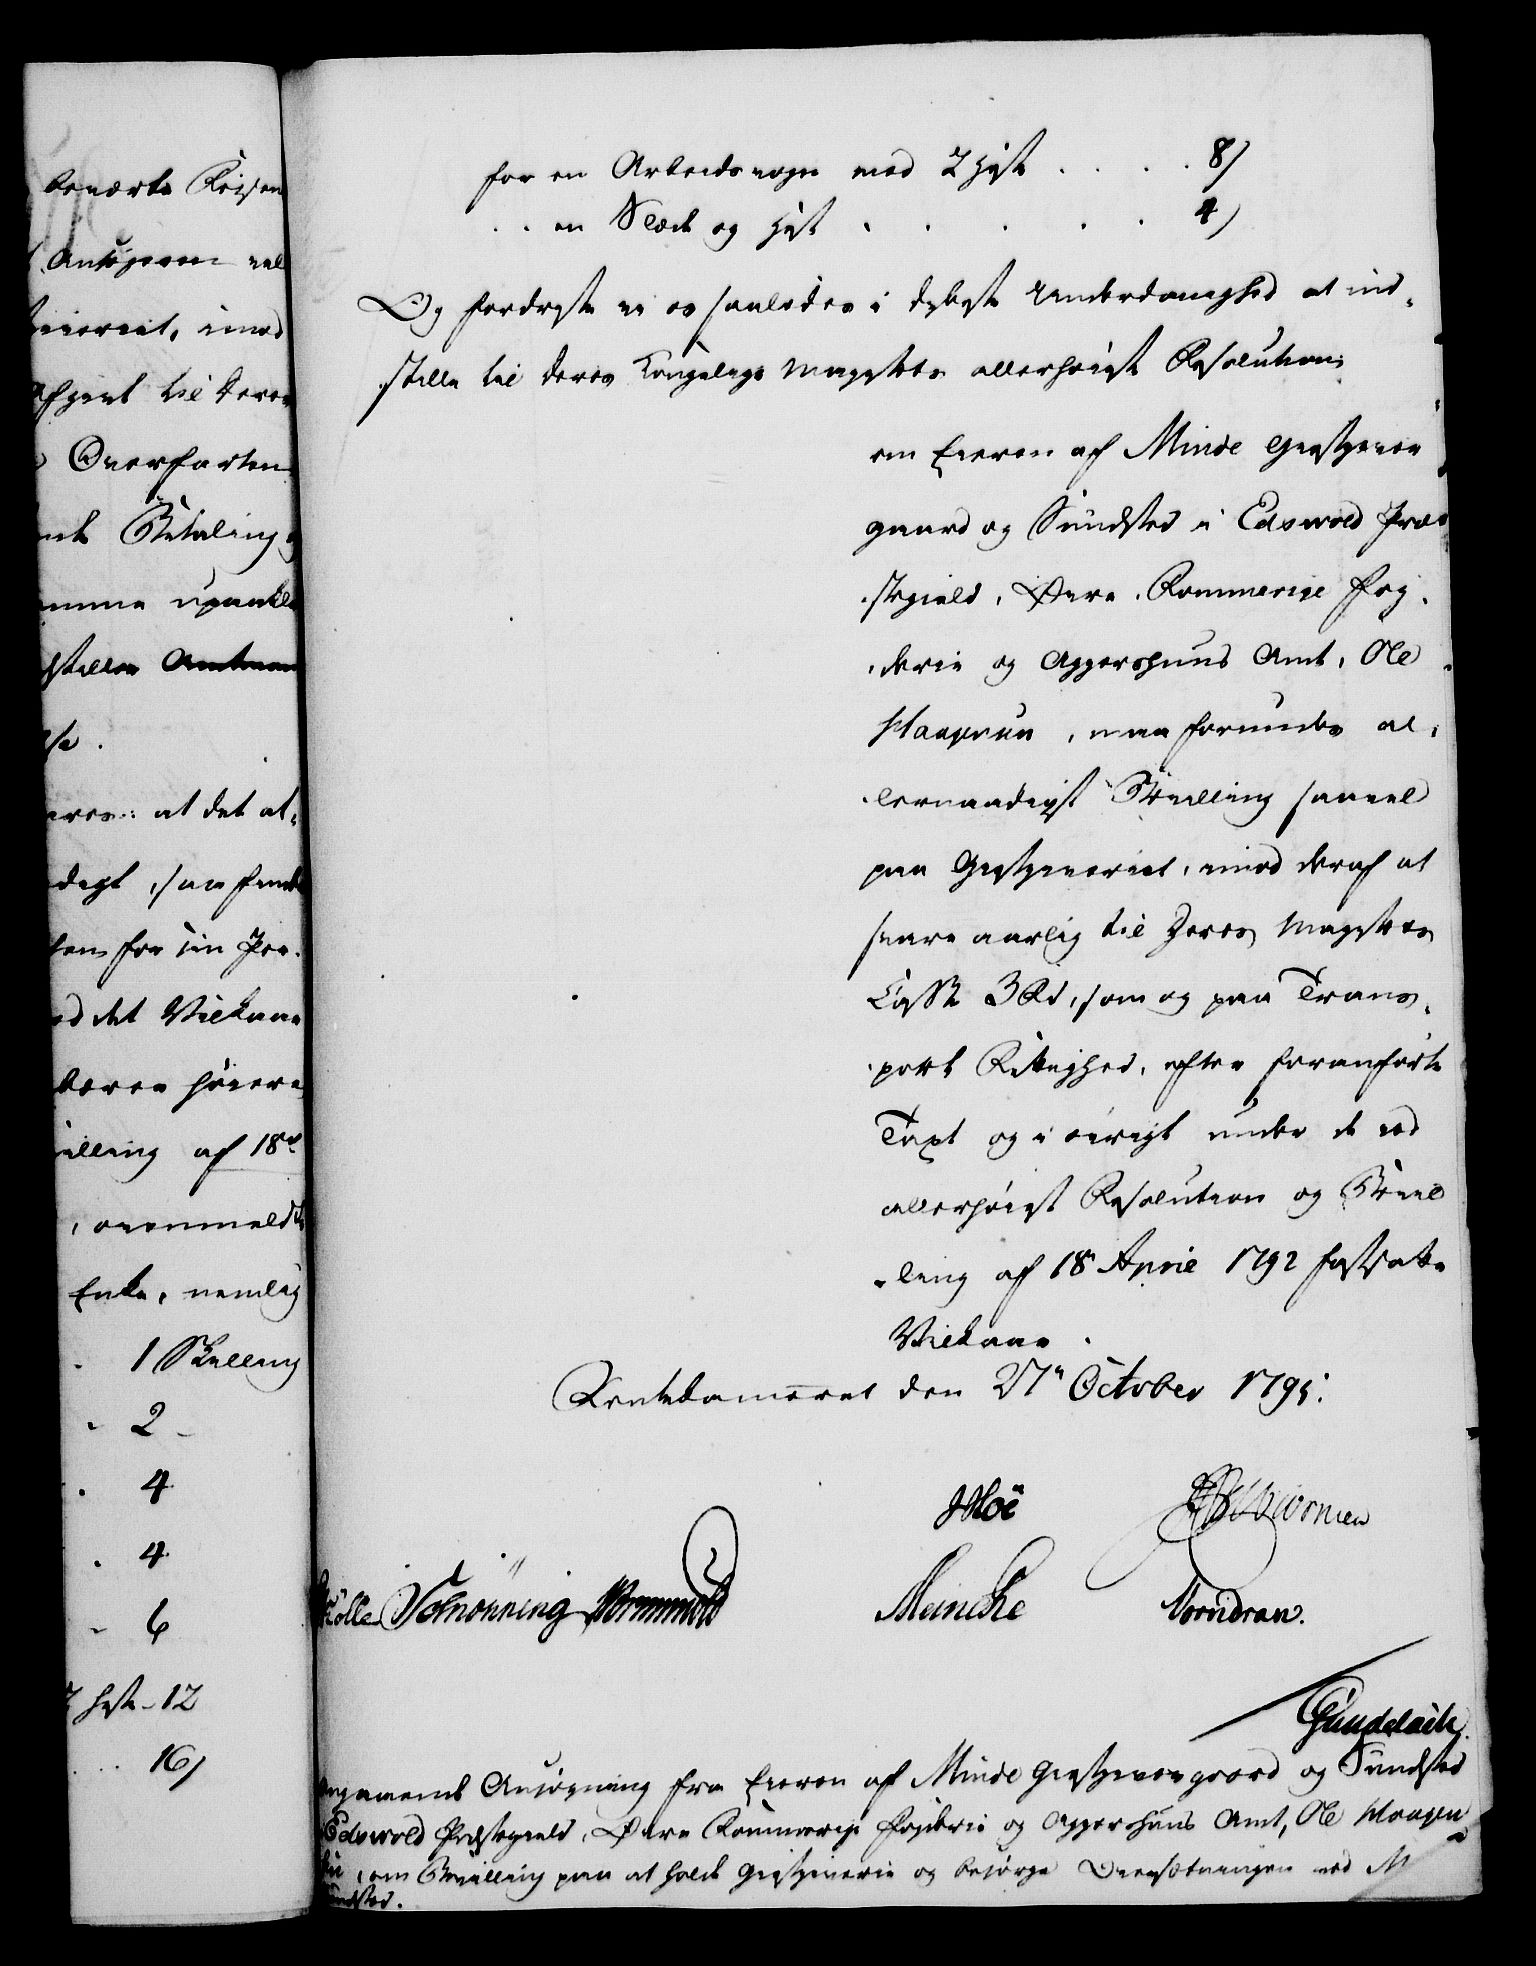 bemærke Reisen
Ansøgeren vel
imod
afgivt til deres
Overfarten
Betaling
umme upaakla
stiller Amtmand
lse.
at det al-
saa finde
ten for sin Per-
ed det Vilkaar
høiere
villing af 18de
, ovenmeldte
Enke, nemlig
1 Skilling
2
4
4
6
2 Heste - 12
16/
for en Arbeidsvogn med 2 Heste . . . . 8/
. . en Slæde og Hest . . . . . 4/
Og fordriste vi os saaledes i dybeste Underdanighed at ind-
stille til Deres Kongelige Majestets allerhøieste Resolution:
om Eieren af Minde Giestgiver
gaard og Sundsted i Edsvold Præ-
stegield, Øvre Rommerige Fog-
derie og Aggershuus Amt, Ole
Haagensen, maa forundes al-
lernaadigst Bevilling saavel
paa Giestgiveriet, imod deraf at
svare aarlig til Deres Majestets
Casse 3 Rd, som og paa Trans-
port Rettighed, efter foranførte
Taxt og i øvrigt under de ved
allerhøieste Resolution og Bevil
-ling af 18 April 1792 fastsatte
Vilkaar.
Rentekammeret den 27de October 1795.
JHoë
Schønning Wormskiold Meincke Vorndran.
Gundelach
angaaende Ansøgning fra Eieren af Minde Giestgivergaard og Sundsted
Edsvold Præstegield, Øvre Rommerige Fogderie og Aggershuus Amt, Ole Haagen
, om Bevilling paa at holde Giestgiverie og besørge Oversætningen ved M
Sundsted.